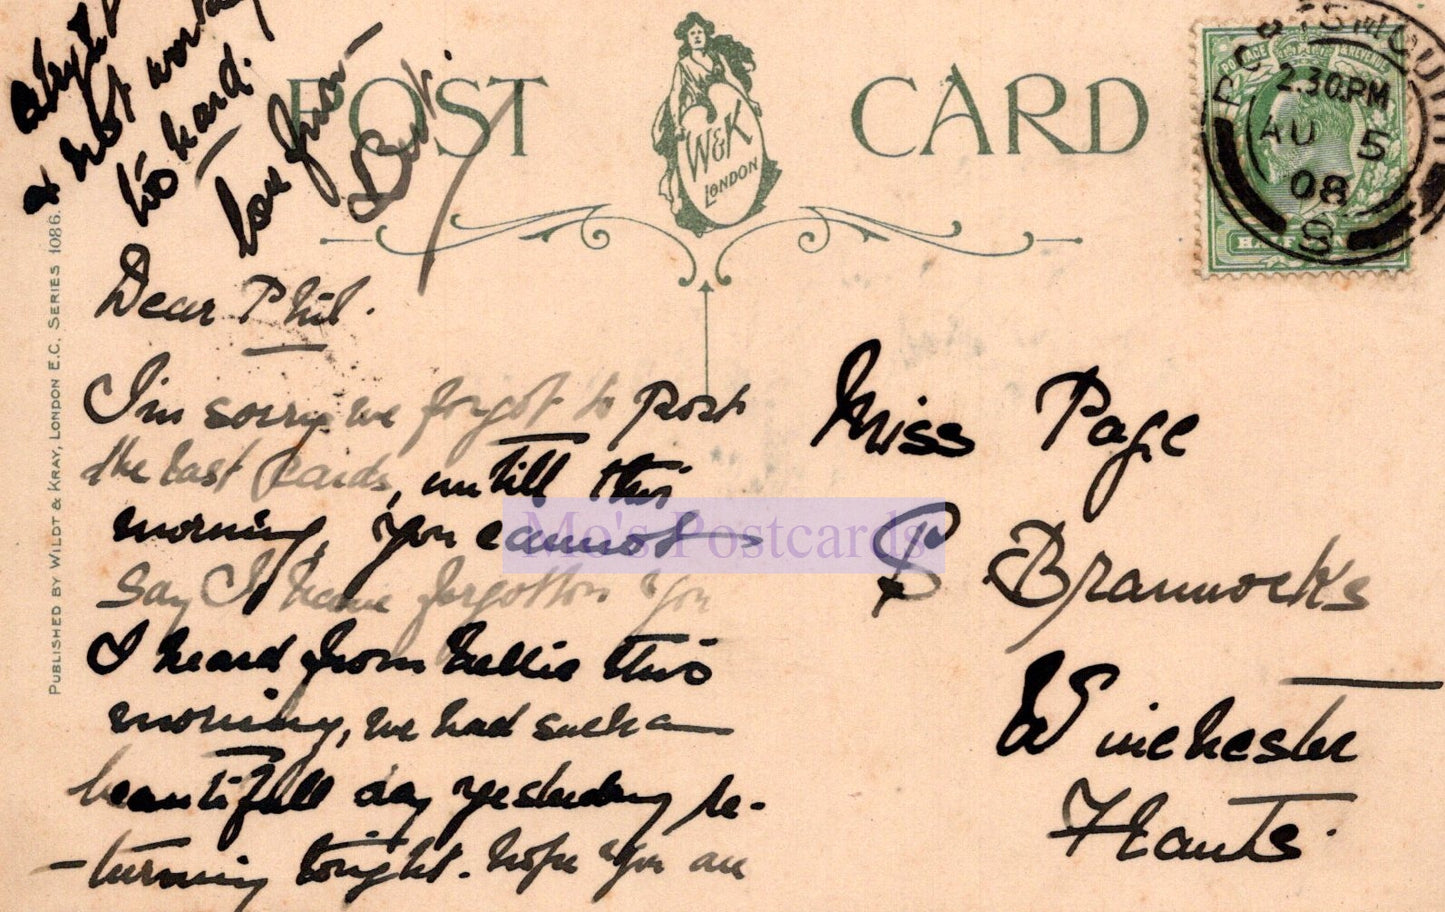 POST CARD
W&K
LONDON
PORTSMOUTH
2.30PM
AU 5
08
8
POSTAGE & REVENUE
HALFPENNY
PUBLISHED BY WILDT & KRAY, LONDON E.C. SERIES 1086.
Dear Phil.
I'm sorry we forgot to post
the last cards, untill this
morning, you cannot
say I have forgotton you
I heard from Nellie this
morning, we had such a
beautifull day yesterday re-
-turning tonight. hope you are
alright
& not working
to hard.
love from
Miss Page
St Brannocks
Winchester
Hants.
Mo's Postcards